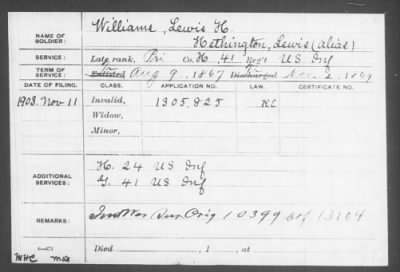 NAME OF SOLDIER: Williams, Lewis H
Hethington, Lewis (alias)
SERVICE: Late rank, Pri Co. H, 41 Reg't US Inf
TERM OF SERVICE: Enlisted Aug 9, 1867 Discharged Nov. 2, 1869
DATE OF FILING. CLASS. APPLICATION NO. LAW. CERTIFICATE NO.
1903. Nov. 11 Invalid, 1305.825
Widow,
Minor,
ADDITIONAL SERVICES: H. 24 US Inf
G. 41 US Inf
REMARKS: Ind War Sur. Orig 10399 ctf 13104
Died , 1 , at